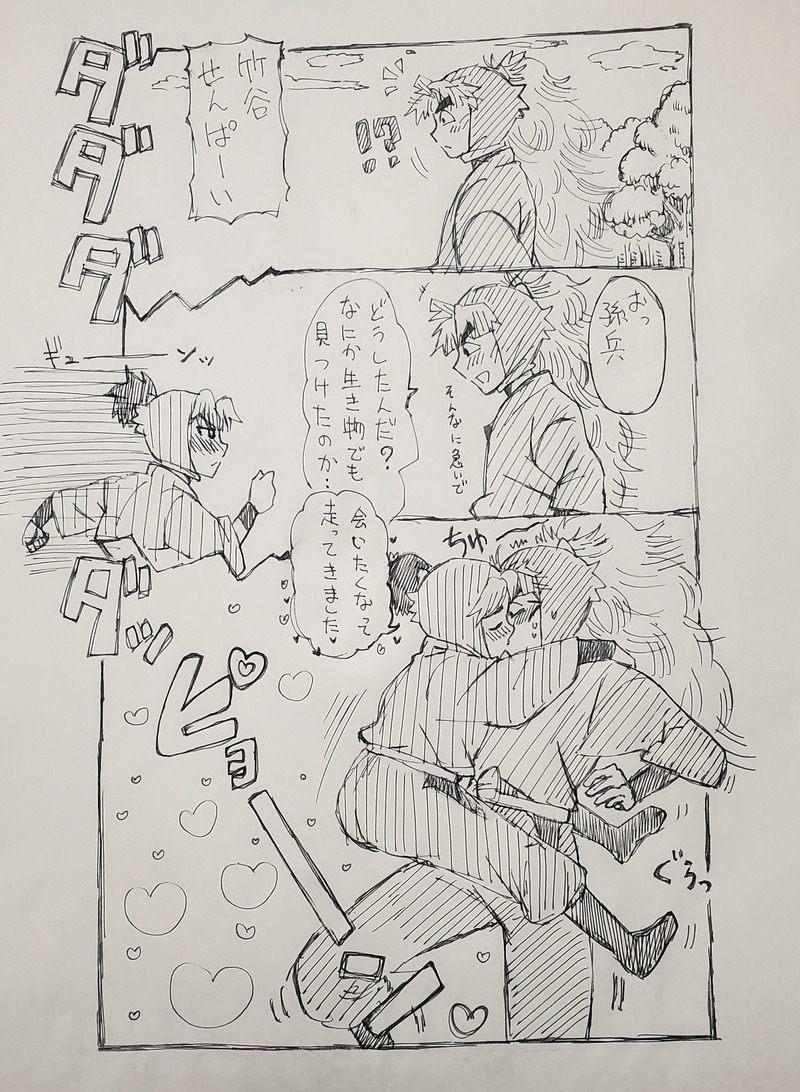 !?
竹谷
せんぱーい
ダダダダダッ
おっ
孫兵
そんなに急いで
どうしたんだ?
なにか生き物でも
見つけたのか…
ギューンッ
会いたくなって
走ってきました
ちゅ
ピョーン
ぐらっ